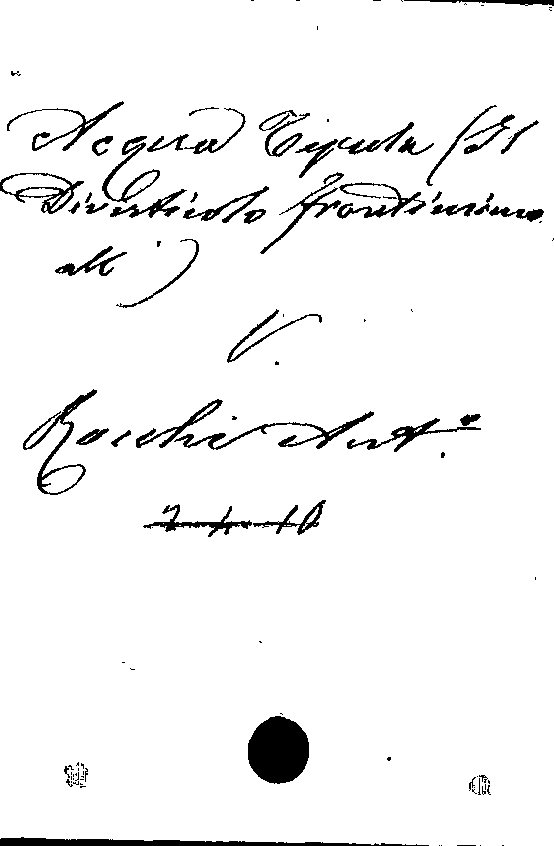 Acqua Tepula (Il
Diverticolo frontiniano
all')
V.
Rocchi Ant.º
2-4-10